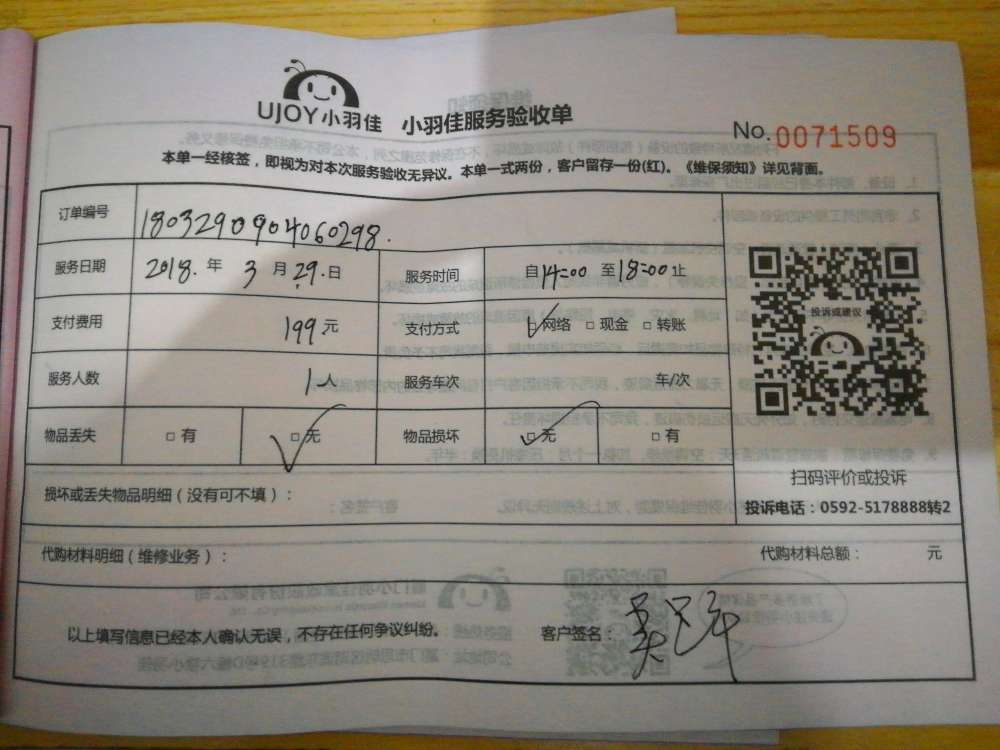 UJOY小羽佳 小羽佳服务验收单
No.0071509
本单一经核签，即视为对本次服务验收无异议。本单一式两份，客户留存一份(红)。《维保须知》详见背面。
订单编号 1803290904060298.
服务日期 2018.年 3月29.日 服务时间 自14:00 至18:00止
支付费用 199元 支付方式 ☑网络 □现金 □转账
服务人数 1人 服务车次 车/次
物品丢失 □有 ☑无 物品损坏 ☑无 □有
投诉或建议
扫码评价或投诉
损坏或丢失物品明细（没有可不填）：
投诉电话：0592-5178888转2
代购材料明细（维修业务）： 代购材料总额： 元
以上填写信息已经本人确认无误，不存在任何争议纠纷。 客户签名：